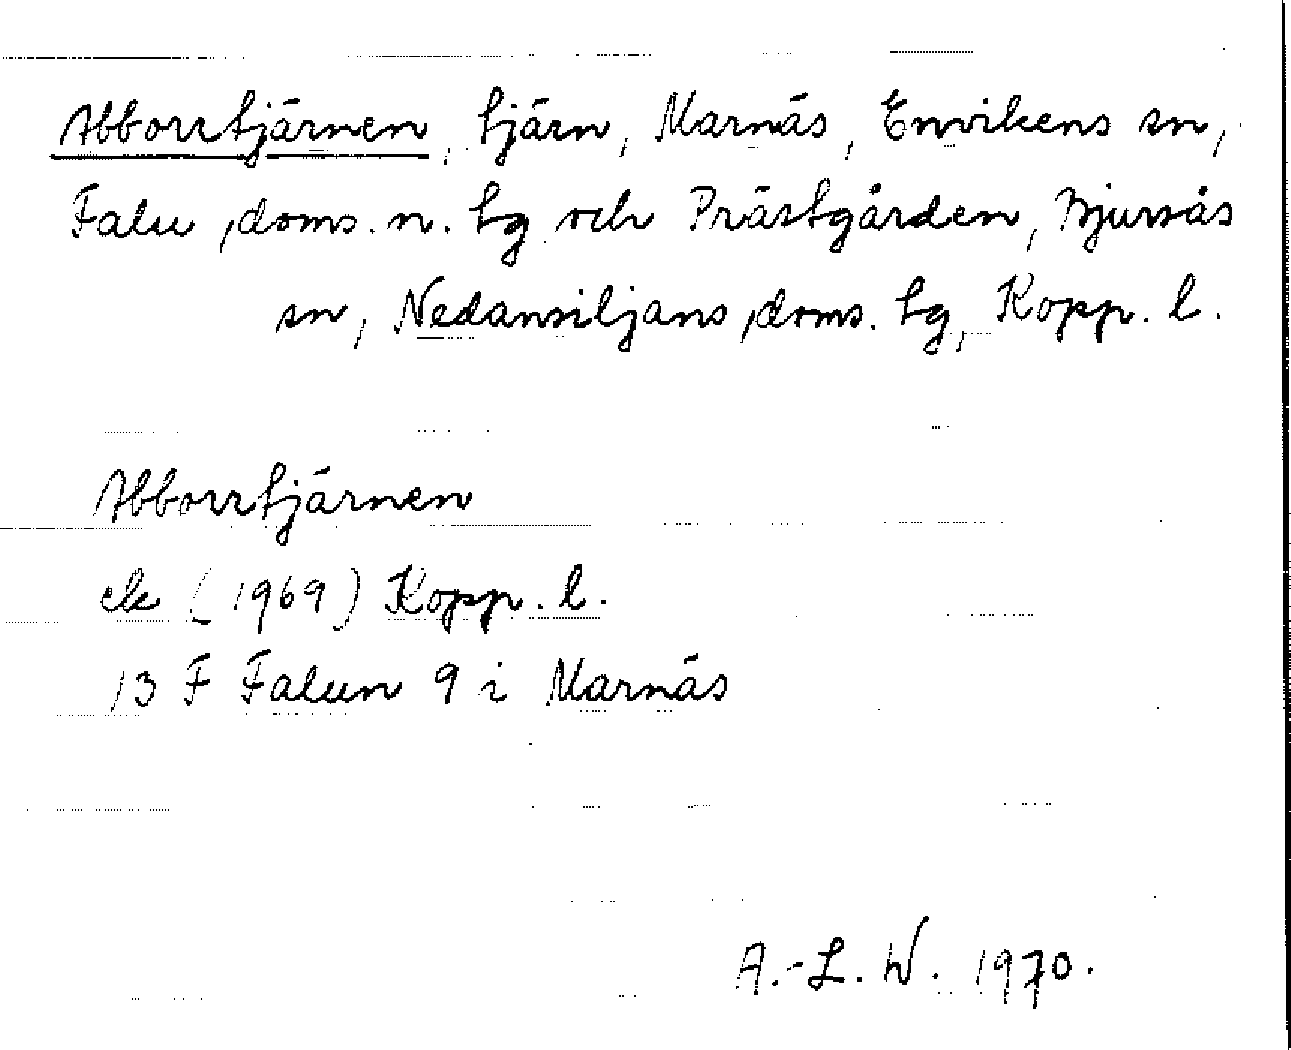 Abborrtjärnen, tjärn, Marnäs, Envikens sn,
Falu doms. n. tg och Prästgården, Bjursås
sn, Nedansiljans doms. tg, Kopp. l.
Abborrtjärnen
ek (1969) Kopp. l.
13 F Falun 9 i Marnäs
A.-L. W. 1970.